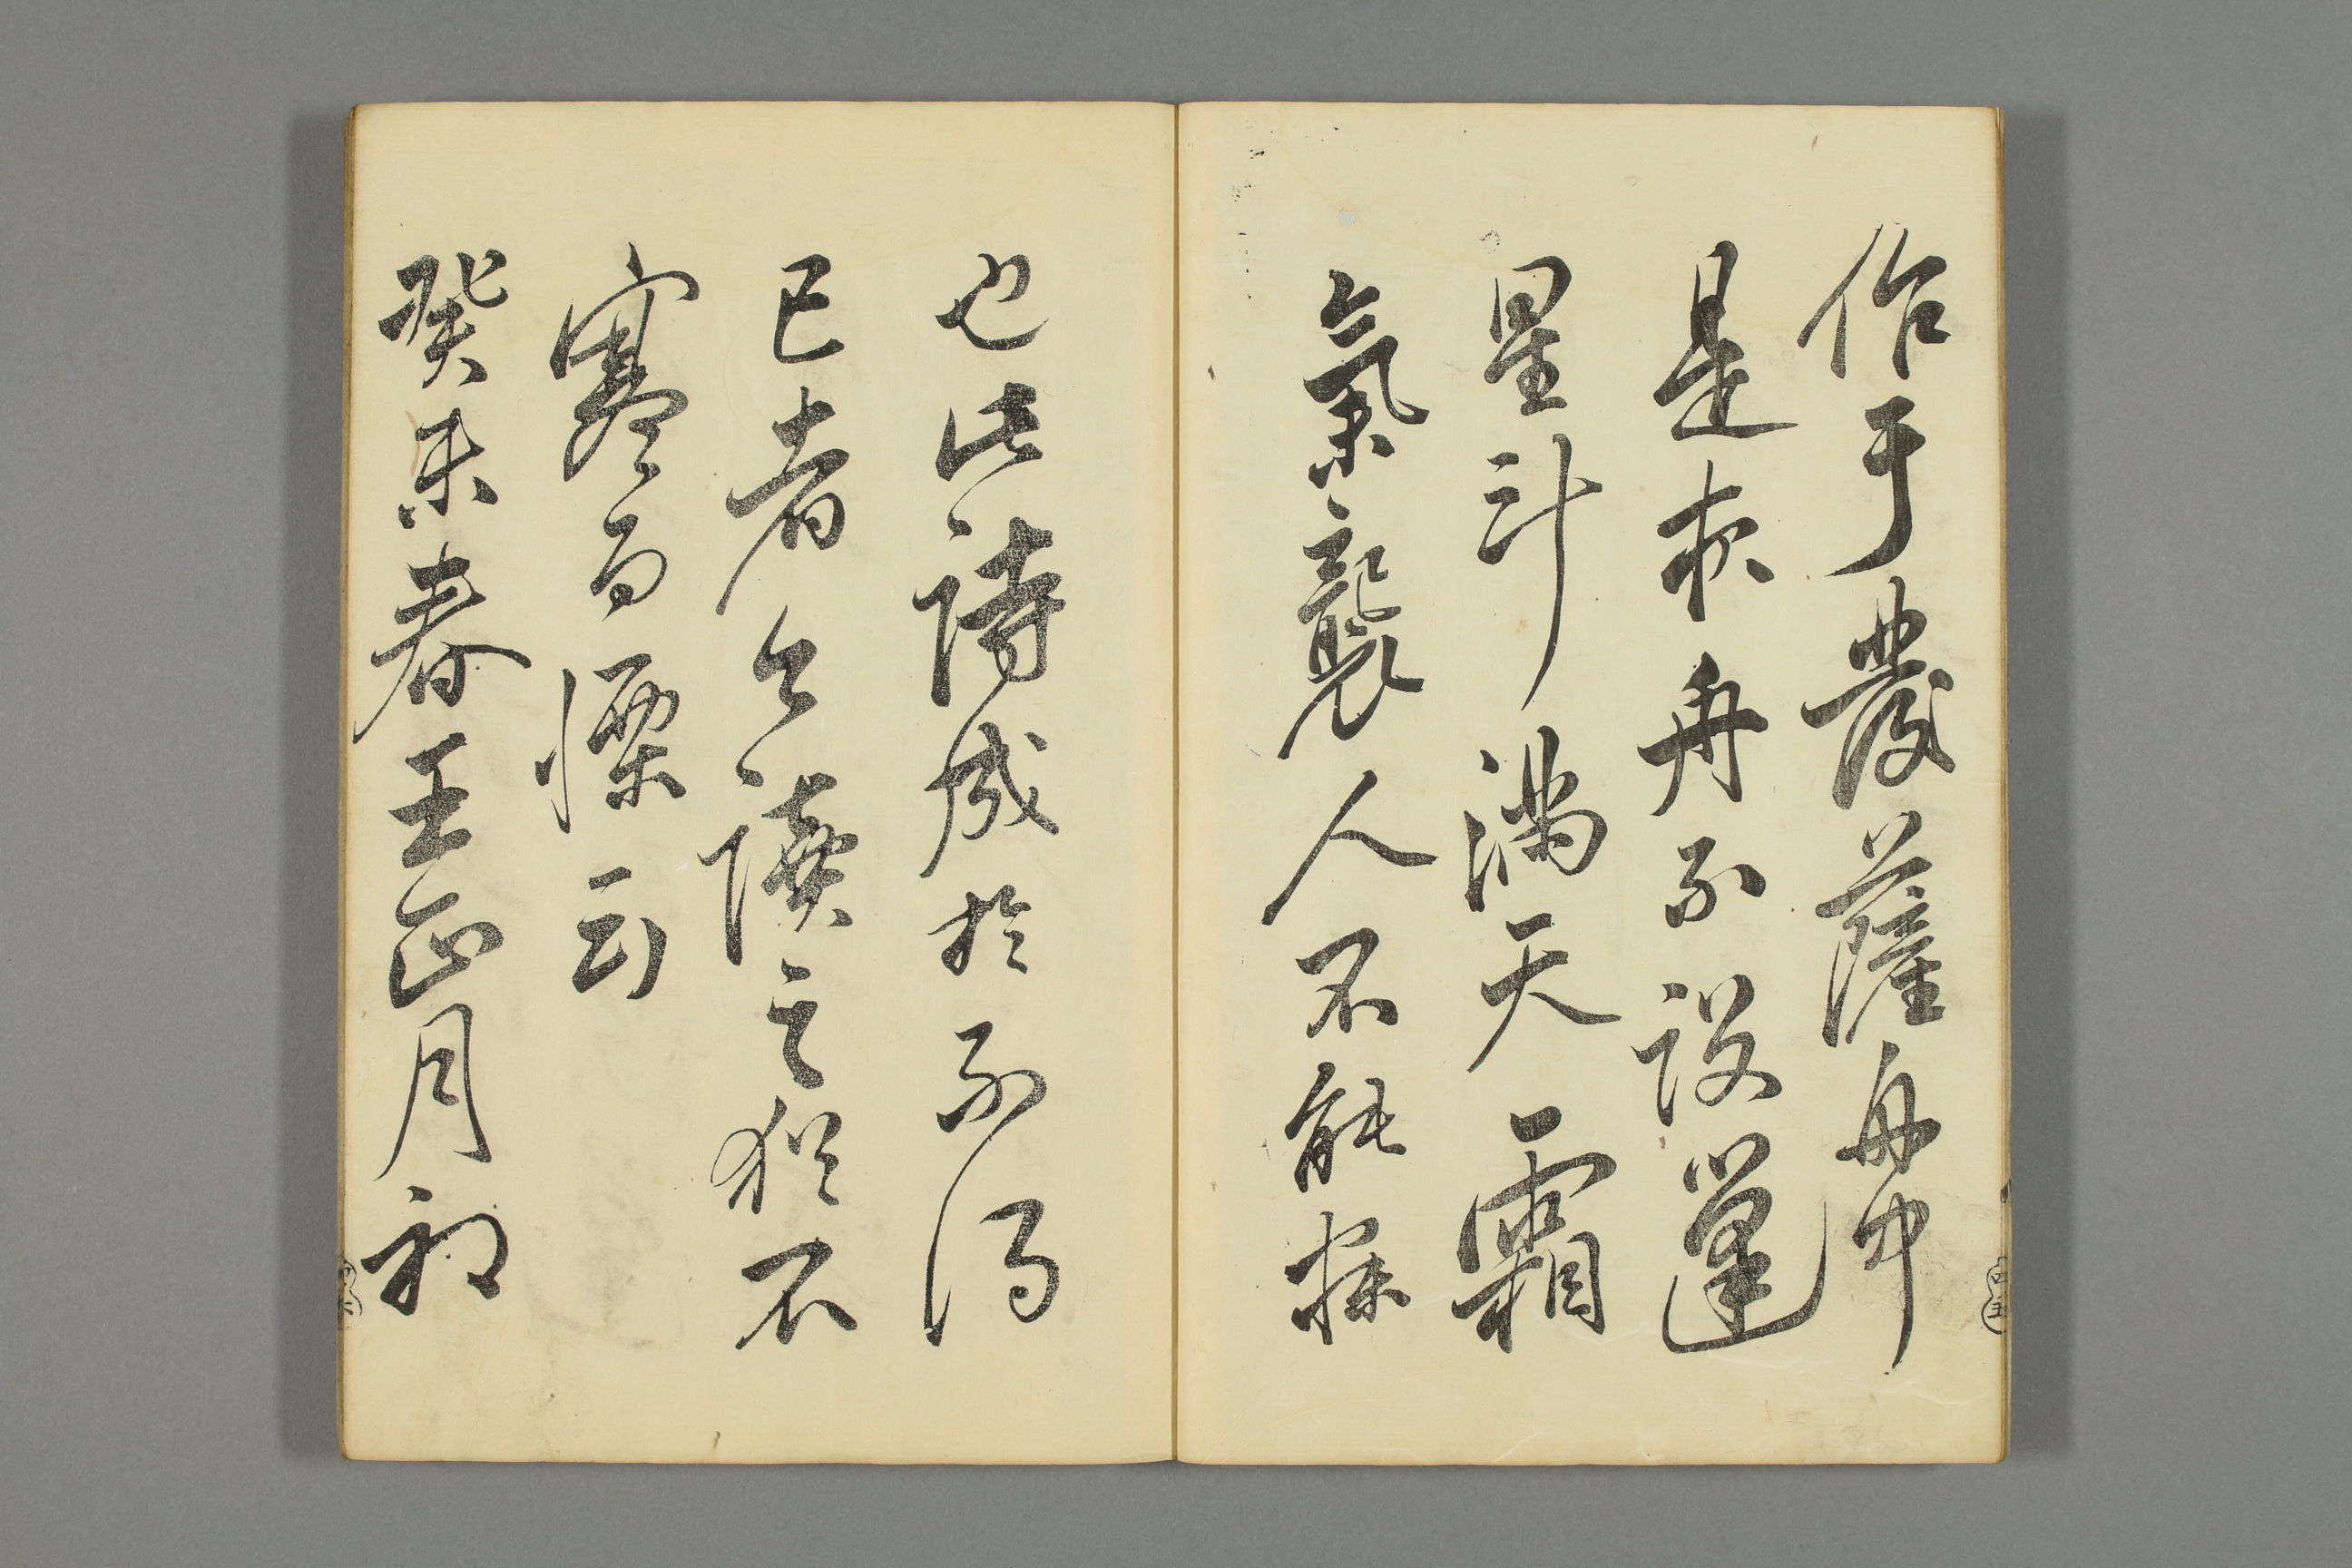 作于發薩舟中
是夜舟不設篷
星斗滿天霜
氣襲人不能寐
也此詩成於不得
已者今讀之猶不
寒而慄云
癸未春王正月初
四五